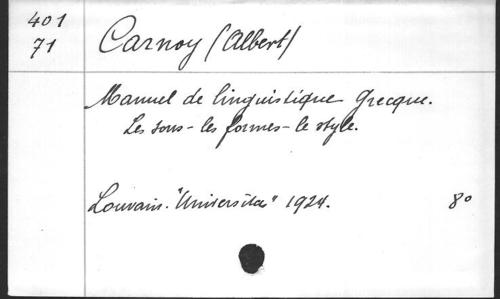 401
71
Carnoy (Albert)
Manuel de linguistique Grecque.
Les sons - les formes - le style.
Louvain. "Universitas" 1924. 8º